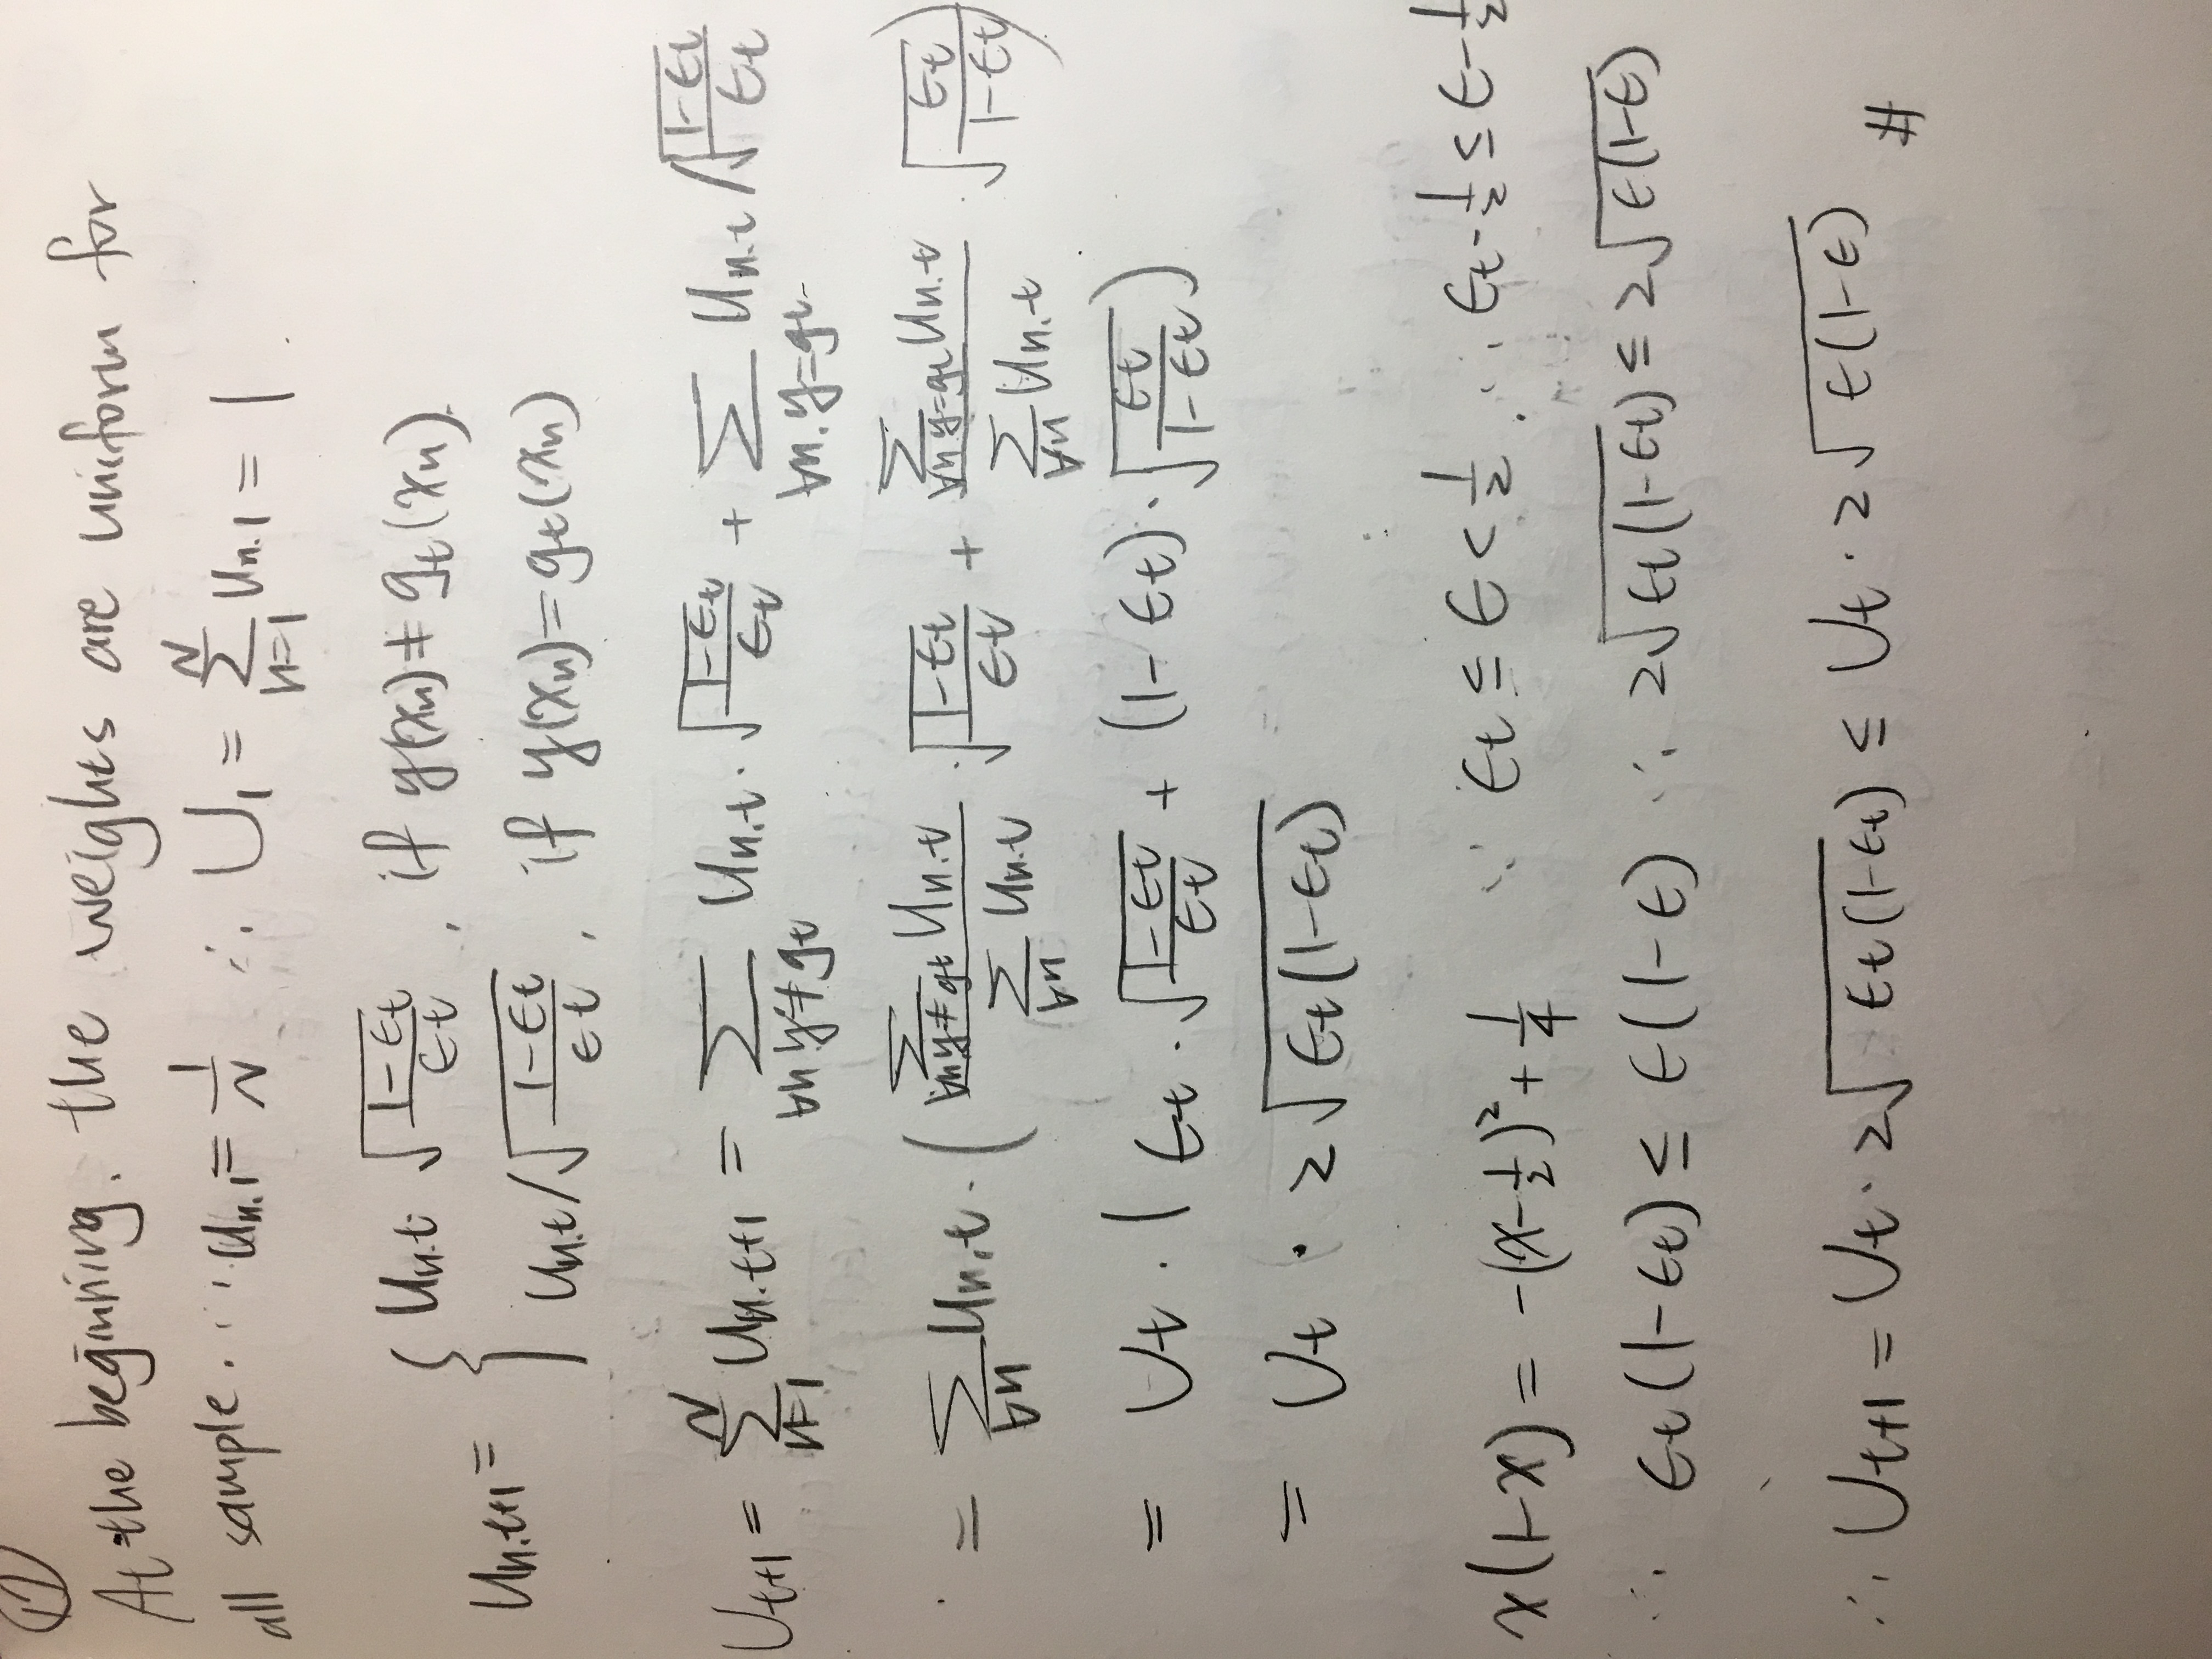 17
At the beginning, the weights are uniform for
all sample. ∵ u_{n,1} = 1/N ∴ U_1 = Σ_{n=1}^{N} u_{n,1} = 1.
u_{n,t+1} = { u_{n,t} √((1-ϵ_t)/ϵ_t), if y(x_n) ≠ g_t(x_n).
u_{n,t} / √((1-ϵ_t)/ϵ_t), if y(x_n) = g_t(x_n)
U_{t+1} = Σ_{n=1}^{N} u_{n,t+1} = Σ_{∀n, y≠g_t} u_{n,t} · √((1-ϵ_t)/ϵ_t) + Σ_{∀n, y=g_t} u_{n,t} / √((1-ϵ_t)/ϵ_t)
= Σ_{∀n} u_{n,t} · ( (Σ_{∀n, y≠g_t} u_{n,t}) / (Σ_{∀n} u_{n,t}) · √((1-ϵ_t)/ϵ_t) + (Σ_{∀n, y=g_t} u_{n,t}) / (Σ_{∀n} u_{n,t}) · √(ϵ_t/(1-ϵ_t)) )
= U_t · ( ϵ_t · √((1-ϵ_t)/ϵ_t) + (1-ϵ_t) · √(ϵ_t/(1-ϵ_t)) )
= U_t · 2√(ϵ_t(1-ϵ_t))
x(1-x) = -(x-1/2)² + 1/4 ∵ ϵ_t ≤ ϵ < 1/2. ∴ ϵ_t - 1/2 ≤ ϵ - 1/2
∴ ϵ_t(1-ϵ_t) ≤ ϵ(1-ϵ) ∴ 2√(ϵ_t(1-ϵ_t)) ≤ 2√(ϵ(1-ϵ))
∴ U_{t+1} = U_t · 2√(ϵ_t(1-ϵ_t)) ≤ U_t · 2√(ϵ(1-ϵ)) #